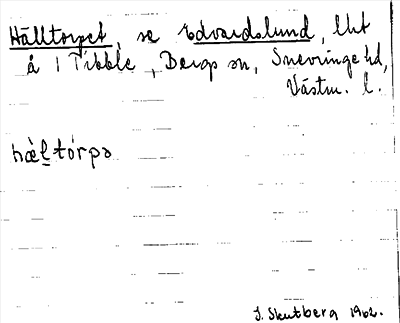 Hälltorpet, se Edvardslund, lht
å 1 Tibble, Bergs sn, Snevringe hd,
Västm. l.
hæ̀ḷtór̀pə
J. Skutberg 1962.